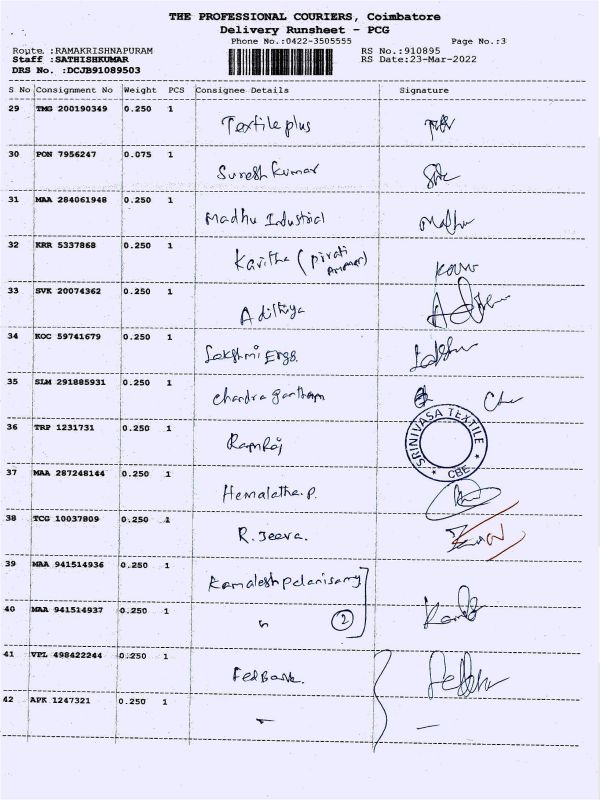 THE PROFESSIONAL COURIERS, Coimbatore
Delivery Runsheet - PCG
Phone No.:0422-3505555 Page No.:3
Route :RAMAKRISHNAPURAM RS No.:910895
Staff :SATHISHKUMAR RS Date:23-Mar-2022
DRS No. :DCJB91089503
S No Consignment No Weight PCS Consignee Details Signature
29 TMG 200190349 0.250 1 Textile plus
30 PON 7956247 0.075 1 Suresh Kumar
31 MAA 284061948 0.250 1 Madhu Industrial Madhu
32 KRR 5337868 0.250 1 Kavitha (pirati
33 SVK 20074362 0.250 1 Adithya
34 KOC 59741679 0.250 1 Lakshmi Engg.
35 SLM 291885931 0.250 1 Chandra
36 TRP 1231731 0.250 1 Ramraj SRINIVASA TEXTILE * CBE *
37 MAA 287248144 0.250 1 Hemalatha.p.
38 TCG 10037809 0.250 1 R. Jeeva.
39 MAA 941514936 0.250 1 Kamalesh pelanisamy
40 MAA 941514937 0.250 1 " 2
41 VPL 498422244 0.250 1 FedBank.
42 APK 1247321 0.250 1 -